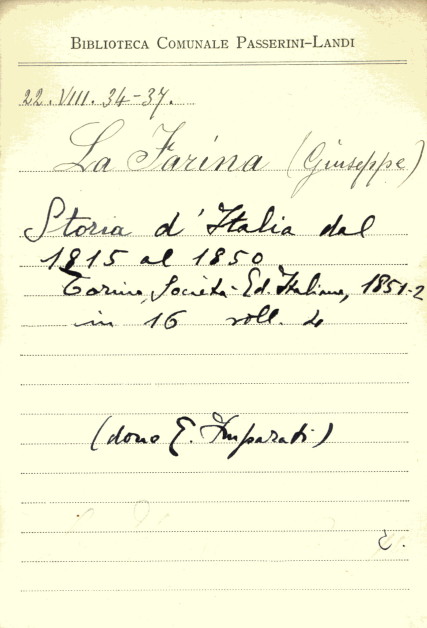 BIBLIOTECA COMUNALE PASSERINI-LANDI
22.VIII.34-37.
La Farina (Giuseppe)
Storia d'Italia dal
1815 al 1850
Torino, Società Ed. Italiana, 1851-2
in 16 voll. 4
(dono E. Imparati)